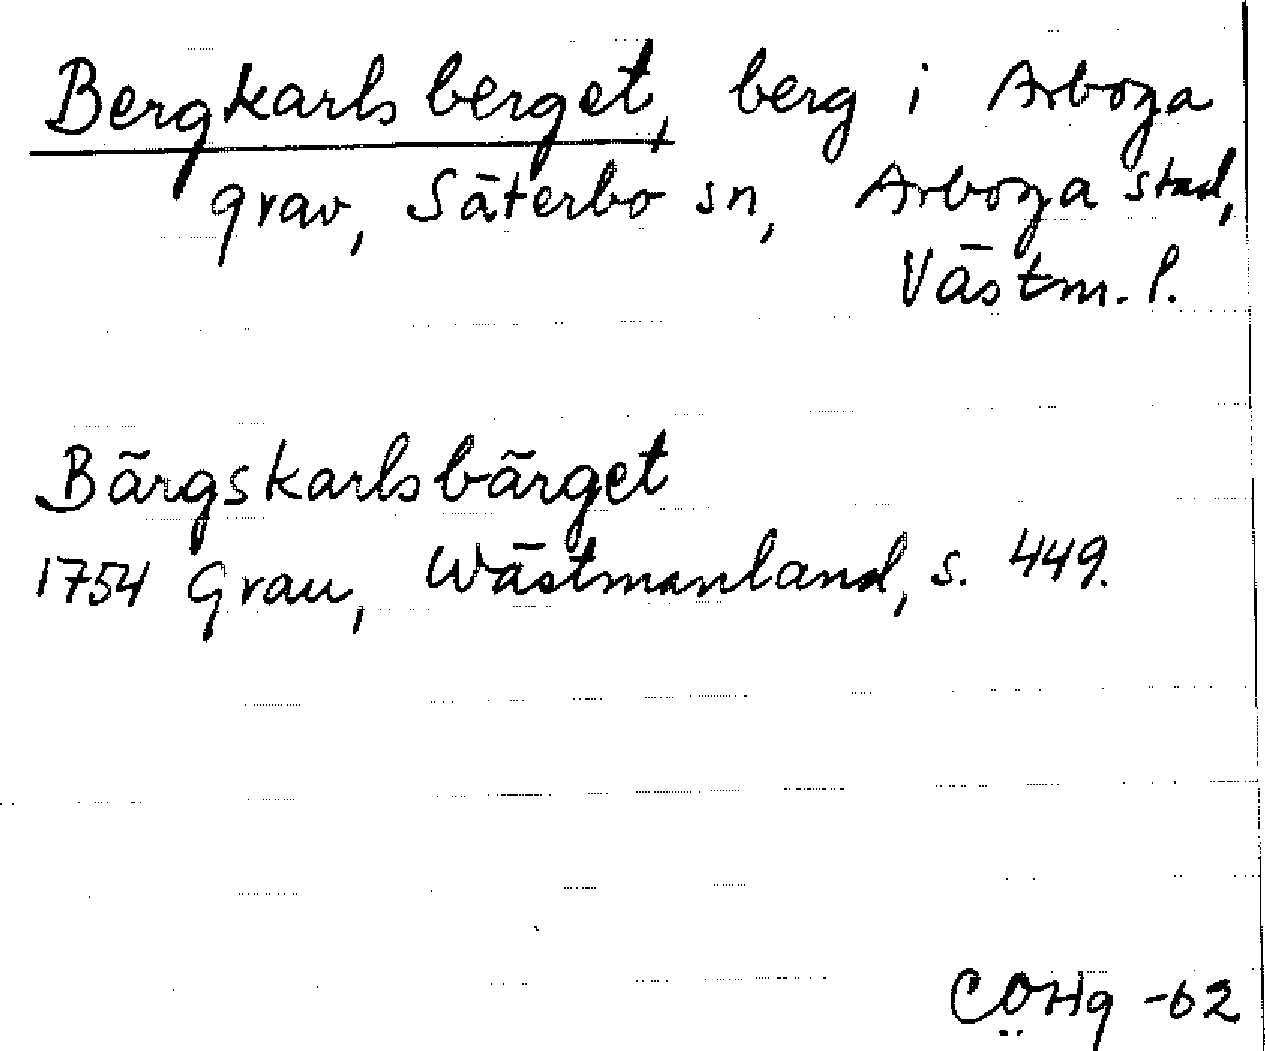 Bergkarlsberget, berg i Arboga
grav, Säterbo sn, Arboga stad,
Västm. l.
Bärgskarlsbärget
1754 Grau, Wästmanland, s. 449.
CÖHg -62